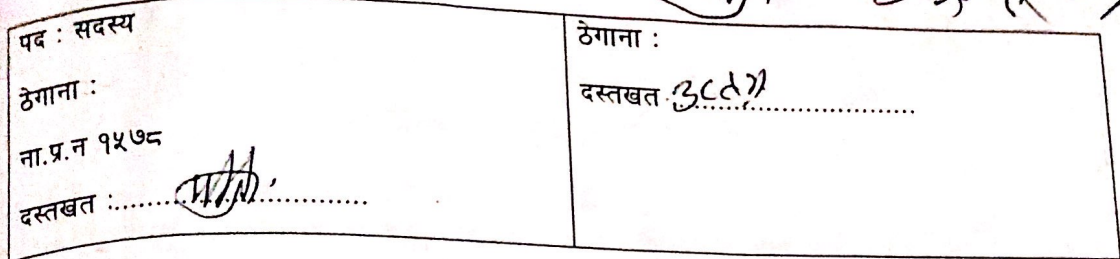 पद : सदस्य
ठेगाना :
ना.प्र.न १५७८
दस्तखत :
ठेगाना :
दस्तखत